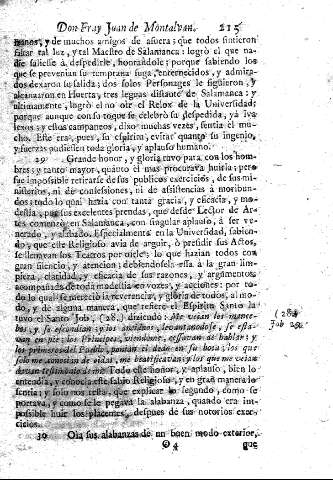 Don Fray Juan de Montalvan. 215
manos, y de muchos amigos de afuera; que todos sintieron
faltar tal luz, y tal Maestro de Salamanca: logrò el que na-
die saliesse à despedirle, honrandole; porque sabiendo los
que se prevenian su temprana fuga, enternecidos, y admira-
dos dexaron su salida; dos solos Personages le siguieron, y
alcanzaron en Huerta, tres leguas distante de Salamanca; y
ultimamente, logrò el no oìr el Relox de la Universidad;
porque aunque con su toque se celebrò su despedida, yà iva
lexos; y essas campaneos, dixo muchas vezes, sentia el mu-
cho. Este era, pues, su espiritu, evitar quanto su ingenio,
y fuerzas pudiessen toda gloria, y aplauso humano.
29 Grande honor, y gloria tuvo para con los hom-
bres; y tanto mayor, quanto èl mas procurava huirla; pero
fue impossible retirarse de sus publicos exercicios, de sus mi-
nisterios, ni de confessiones, ni de assistencias à moribun-
dos; todo lo qual hazia con tanta gracia, y eficacia, y mo-
destia, por sus excelentes prendas, que desde Lector de Ar-
tes comenzò en Salamanca, con singular aplauso, à ser ve-
nerado, y alabado. Especialmente en la Universidad, sabien-
do, que este Religioso avia de arguir, ò presidir sus Actos,
se llenavan los Teatros por oirle; lo que hazian todos con
gran silencio, y atencion; debiendose esta à la gran lim-
pieza, claridad, y eficacia de sus razones, y argumentos
acompañados de toda modestia en vozes, y acciones: por to-
do lo qual se mereciò la reverencia, y gloria de todos, al mo-
do, y de alguna manera, que refiere el Espiritu Santo la
tuvo el Santo Job, (28.) diciendo: Me veian los mance-
bos, y se escondian; y los ancianos levantandose, se esta-
van en pie; los Principes, viendome, cessavan de hablar; y
los primeros del Pueblo, ponian el dedo en su boca; los que
me vida, me beatificavan; y los que me veian
davan testimonio à mi. Todo este honor, y aplauso, bien lo
entendia, y conocia este sabio Religioso, y en gran manera lo
sentia; y solo nos resta, que explicar lo segundo, como se
portava, y como se le pegava la alabanza, quando era im-
possible huir los placemes, despues de sus notorios exer-
cicios.
(28.)
Job 29.
30 Oìa sus alabanzas de un buen modo exterior,
O 4 que